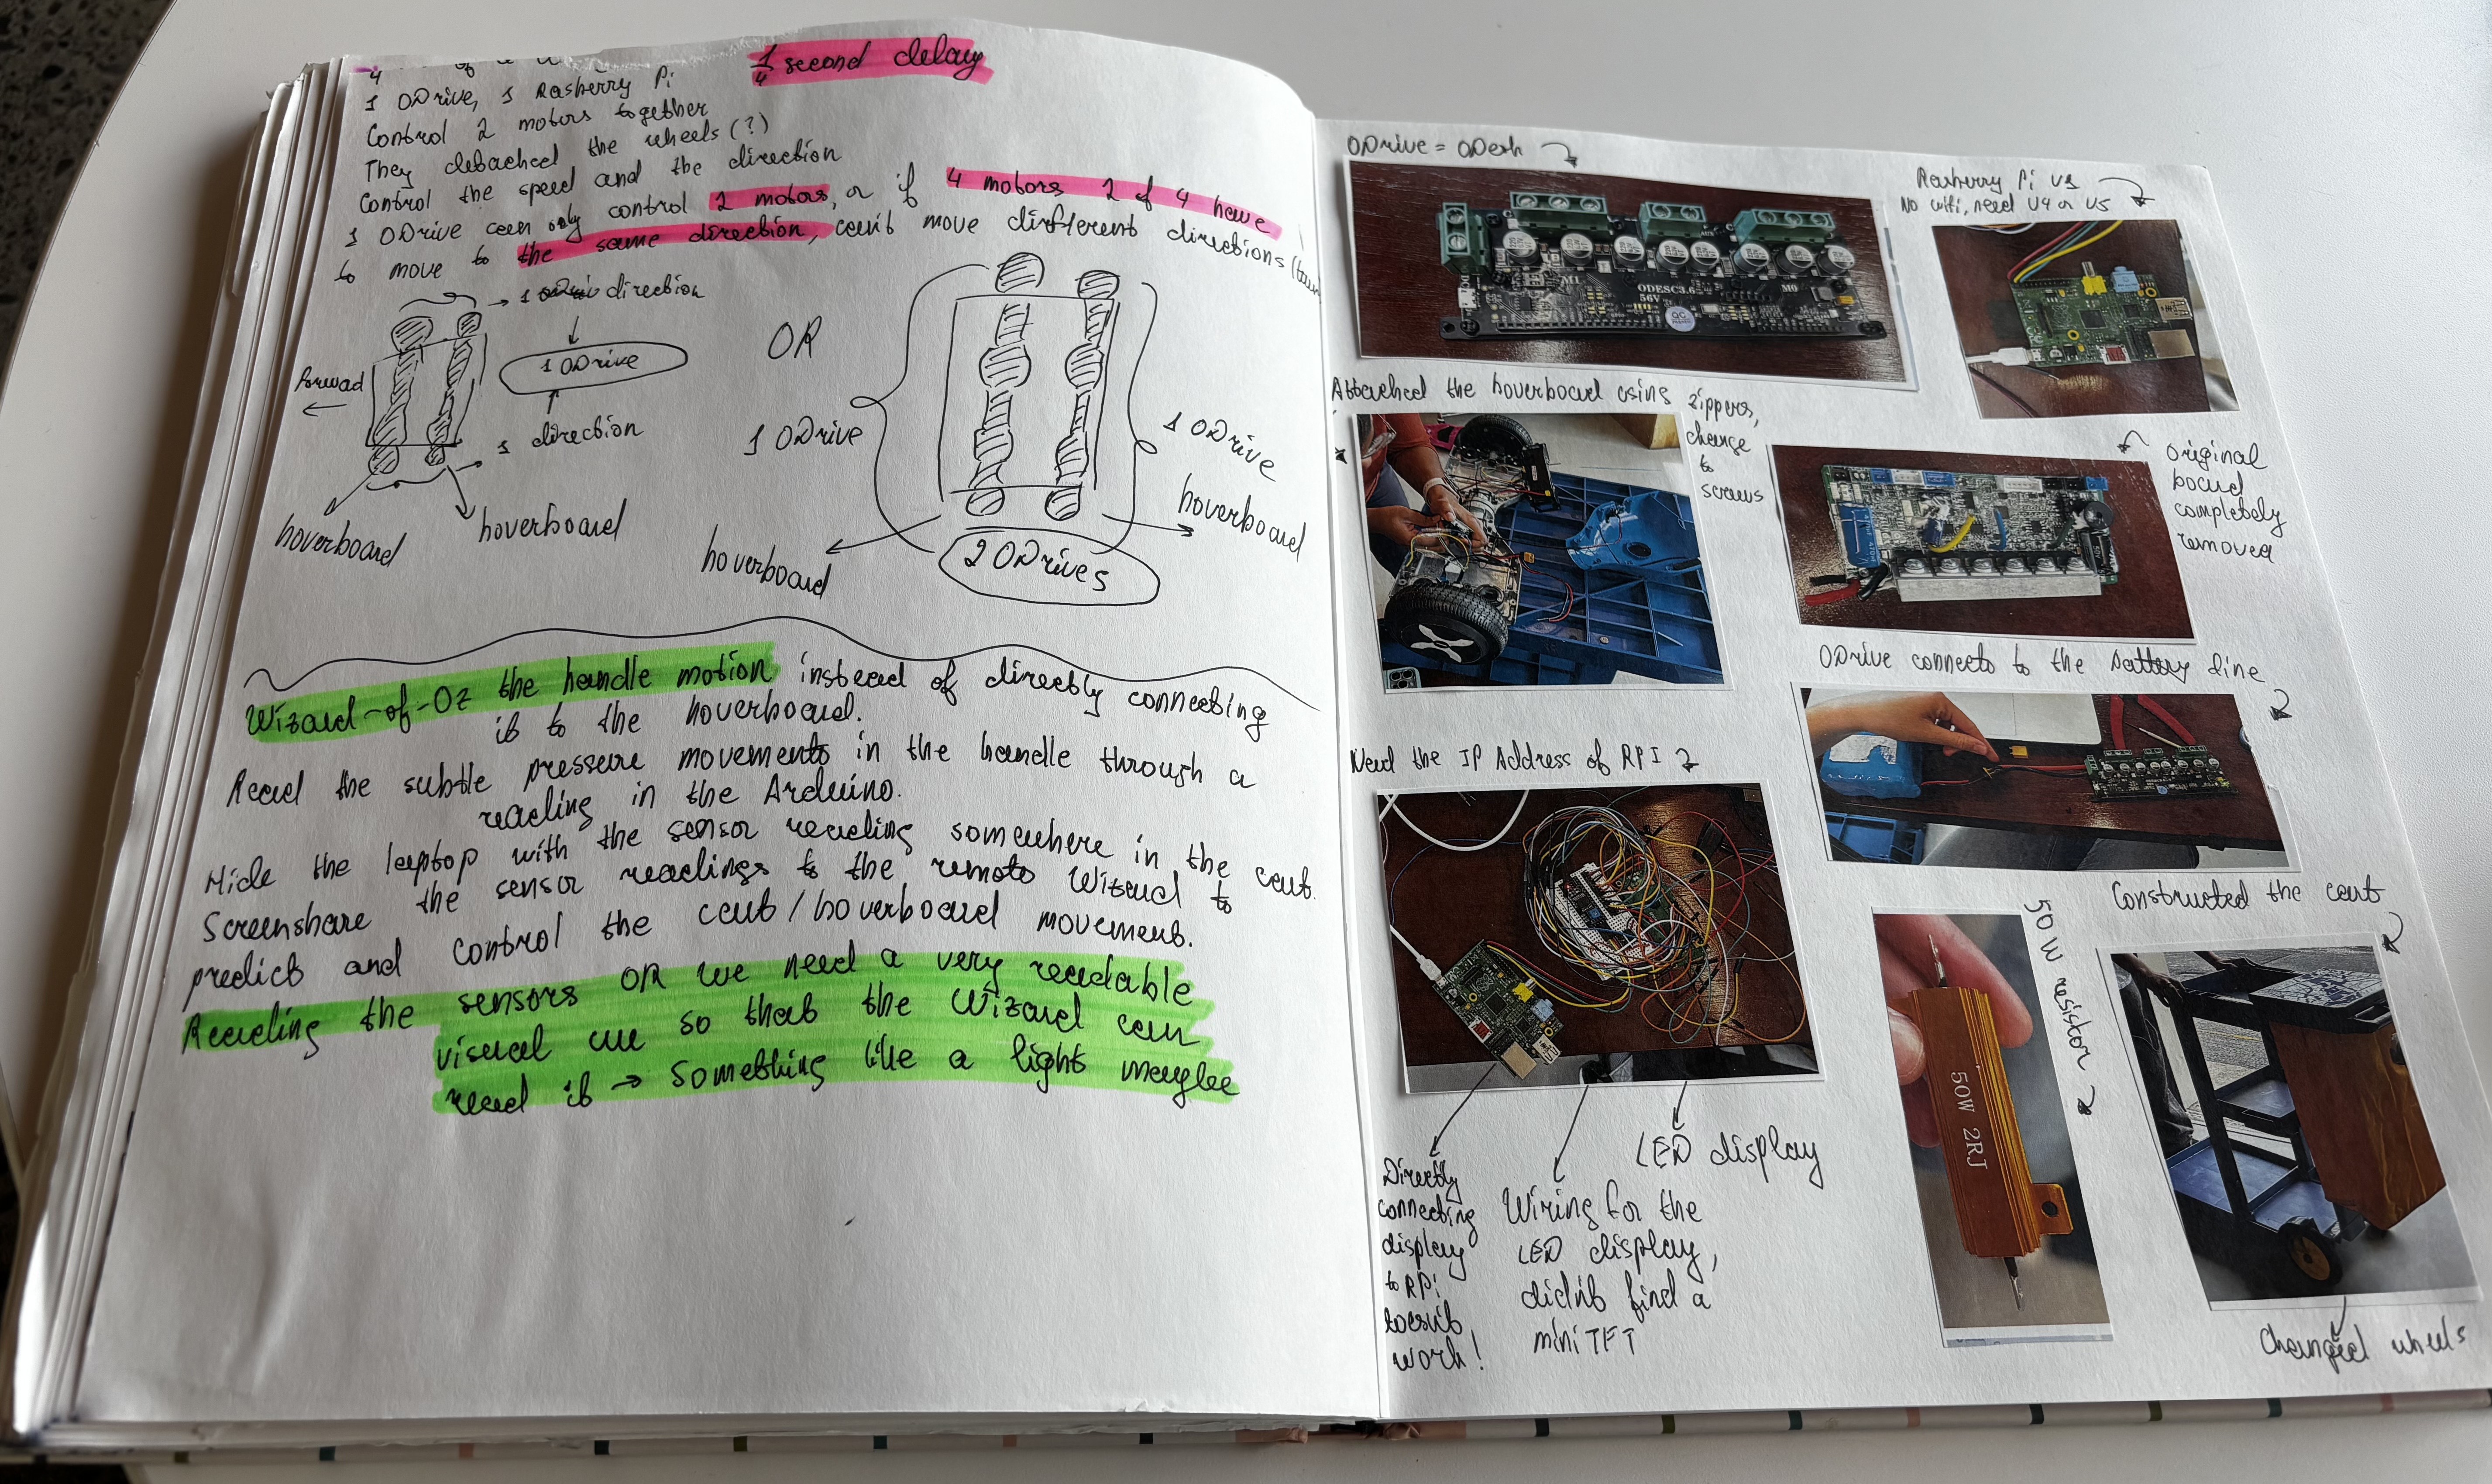 1/4 second delay
1 ODrive, 1 Rasberry Pi
Control 2 motors together
They detached the wheels (?)
Control the speed and the direction
1 ODrive can only control 2 motors, or if 4 motors 2 of 4 have
to move to the same direction, can't move different directions
1 direction
1 ODrive
1 direction
forwad
hoverboard
hoverboard
OR
1 ODrive
1 ODrive
hoverboard
hoverboard
2 ODrives
Wizard-of-Oz the handle motion instead of directly connecting
it to the hoverboard.
Read the subtle pressure movements in the handle through a
reading in the Arduino.
Hide the laptop with the sensor reading somewhere in the cart.
Screenshare the sensor readings to the remote Wizard to
predict and control the cart/hoverboard movement.
Reading the sensors OR we need a very readable
visual cue so that the Wizard can
read it → something like a light maybe
ODrive =
M1
ODESC3.6
56V
M0
QC
Rasberry Pi V1
No wifi, need V4 or V5
Attached the hoverboard using zippers,
change
to
screws
Original
board
completely
removed
ODrive connects to the battery line
Need the IP Address of RPI
Directly
connecting
display
to RPi
doesn't
work!
Wiring for the
LED display,
didn't find a
mini TFT
LED display
50W resistor
50W 2RJ
Constructed the cart
Changed wheels